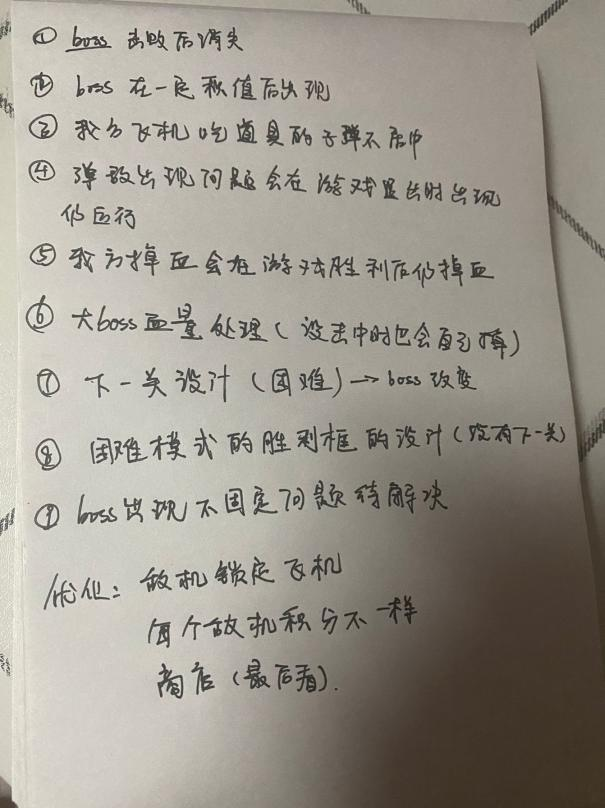 ① boss 击败后消失
② boss 在一定秋值后出现
③ 我方飞机吃道具的子弹不居中
④ 弹数出现问题会在游戏退出时出现
仍运行
⑤ 我方掉血会在游戏胜利后仍掉血
⑥ 大boss血量处理(没击中时也会自己掉)
⑦ 下一关设计(困难)→boss改变
⑧ 困难模式的胜利框的设计(没有下一关)
⑨ boss出现不固定问题待解决
优化: 敌机锁定飞机
每个敌机积分不一样
商店(最后看).